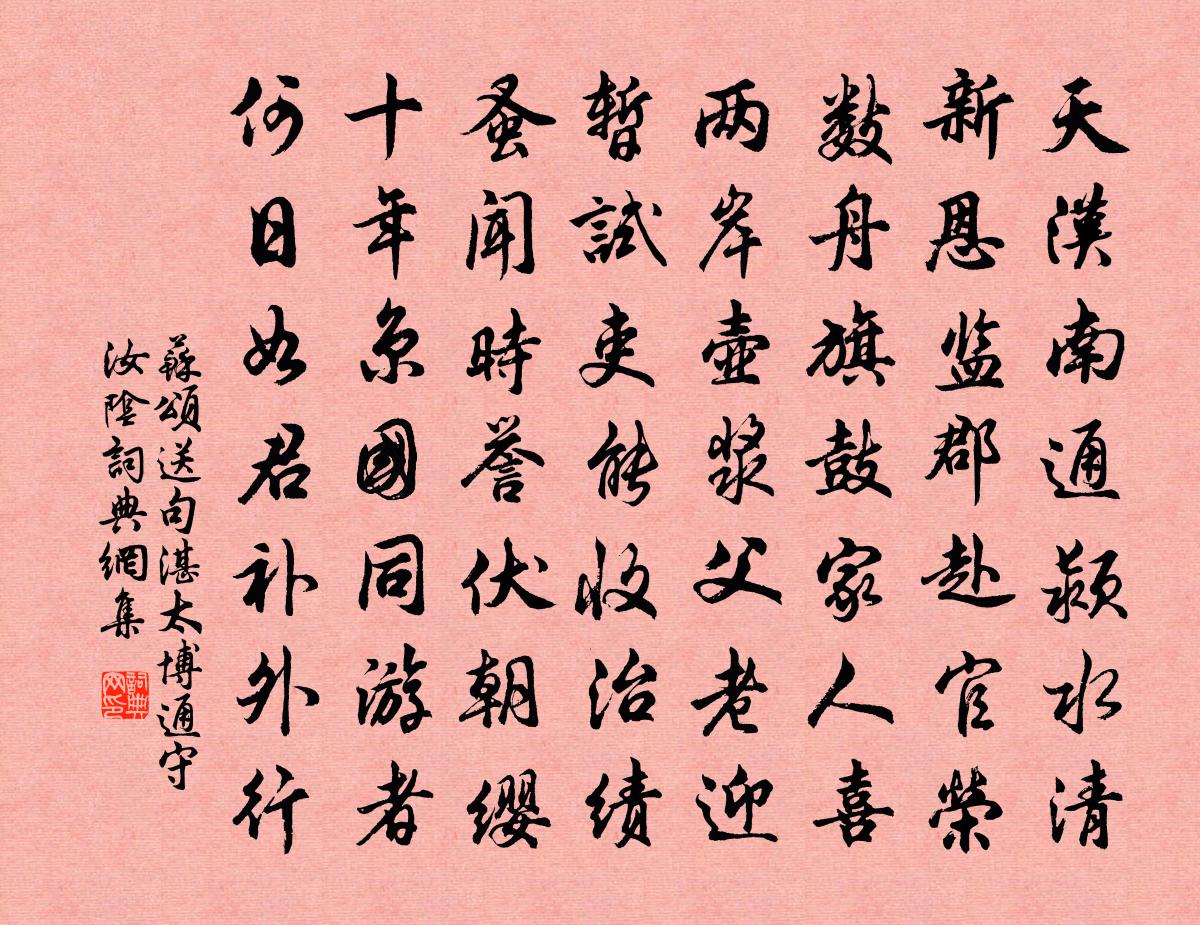 天漢南通潁水清
新恩监郡赴官榮
数舟旗鼓家人喜
两岸壺漿父老迎
暫試吏能收治績
蚤聞時誉伏朝纓
十年京國同游者
何日如君补外行
蘇頌送句湛太博通守
汝陰詞典網集
詞典网印